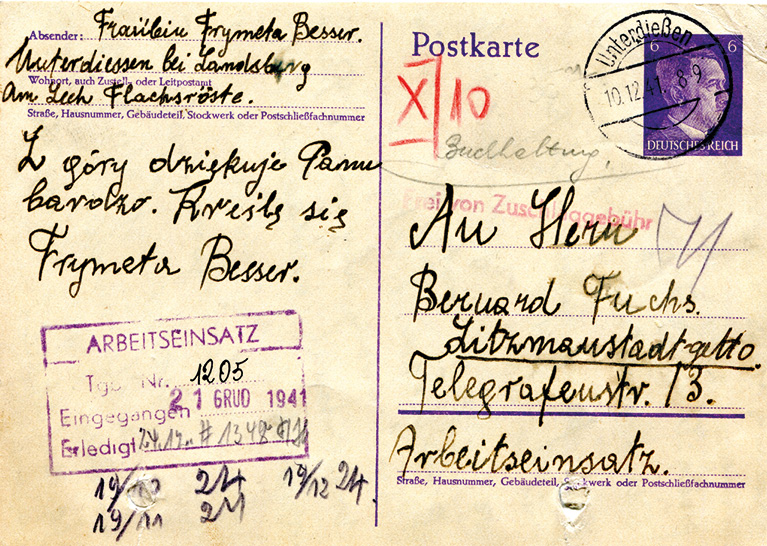 Absender: Fraülein Frymeta Besser.
Unterdiessen bei Landsburg
Wohnort, auch Zustell- oder Leitpostamt
am Lech Flachsröste.
Straße, Hausnummer, Gebäudeteil, Stockwerk oder Postschließfachnummer
Z góry dziękuje Panu
bardzo. Kreślę się
Frymeta Besser.
ARBEITSEINSATZ
Tgb. Nr. 1205
Eingegangen 21 GRUD 1941
Erledigt
19/12 24 19/12 24.
19/11 24
Postkarte
Unterdießen
10.12.41. 8-9
6 6
DEUTSCHES REICH
X/10
Buchhaltung,
Frei von Zuschlaggebühr
An Herrn
Bernard Fuchs.
Litzmanstadt-getto.
Telegrafenstr. 13.
Arbeitseinsatz.
Straße, Hausnummer, Gebäudeteil, Stockwerk oder Postschließfachnummer